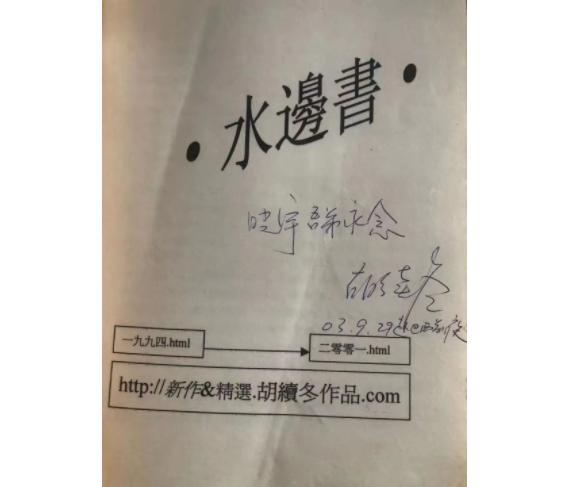 ·水邊書·
晓宇吾弟永念
胡续冬
03.9.29赴巴西前夜
一九九四.html
二零零一.html
http://新作&精選.胡續冬作品.com